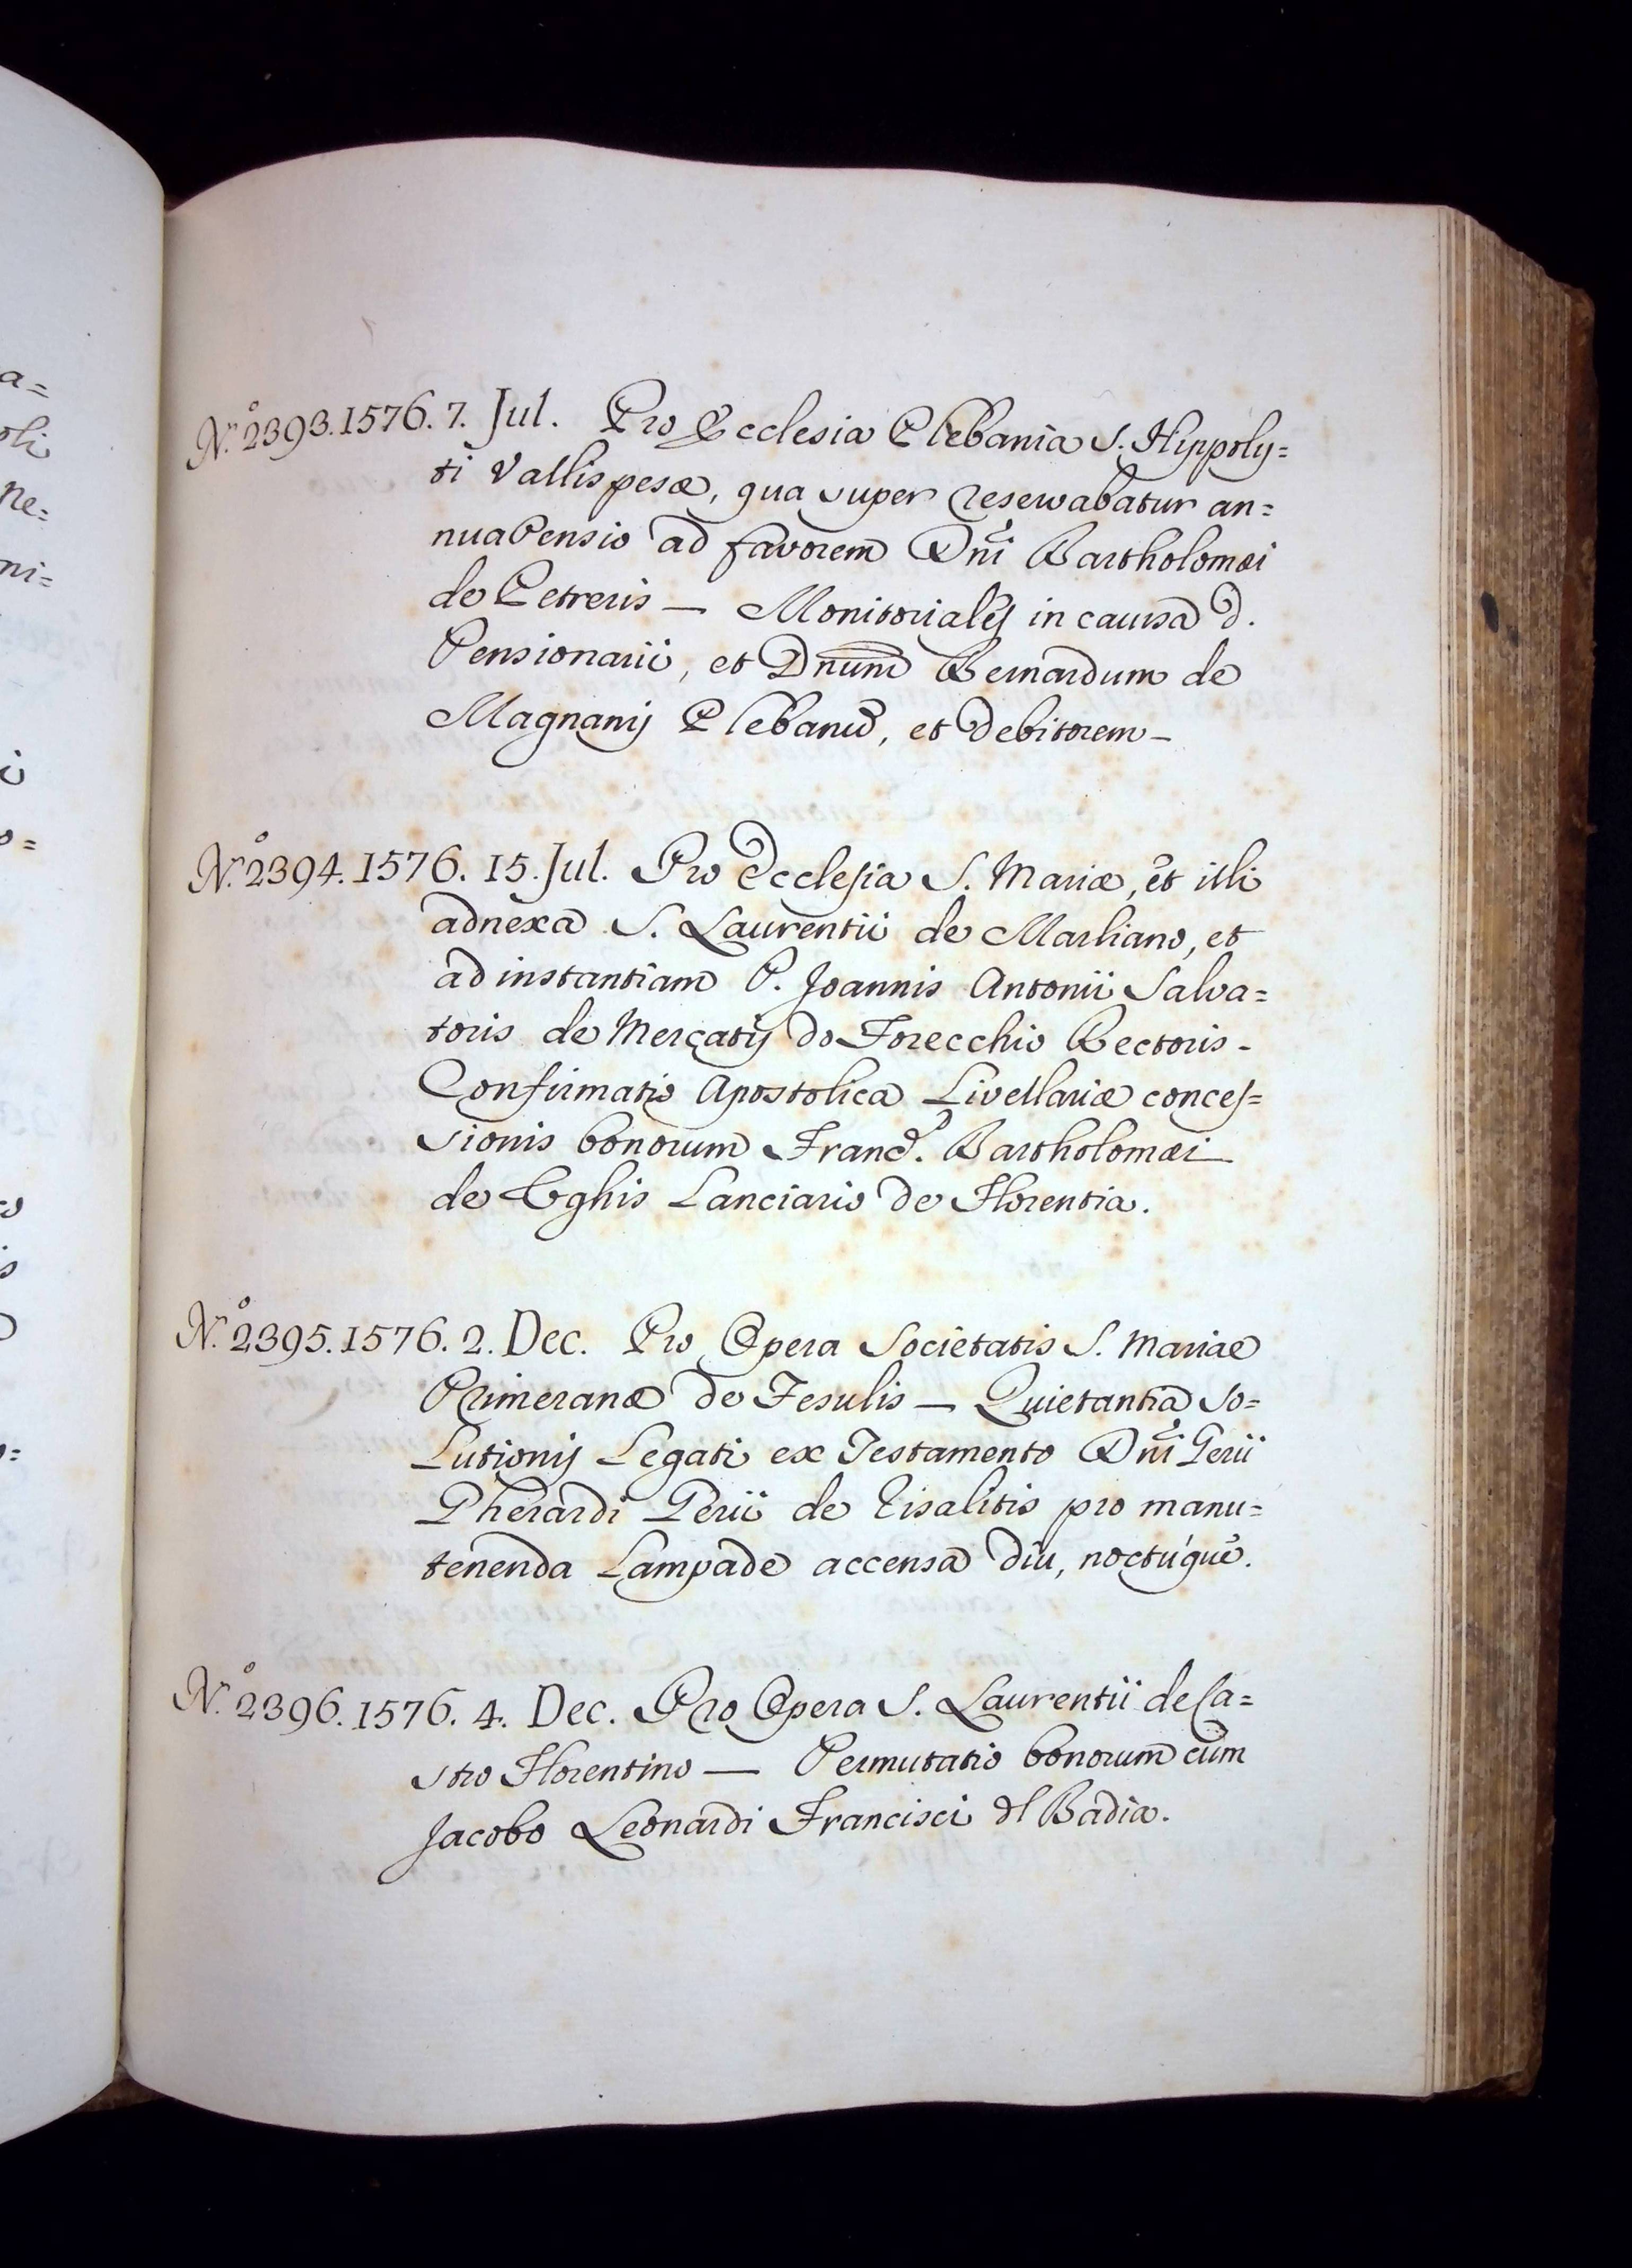 N.º 2393. 1576. 7. Jul. Pro Ecclesia Plebania S. Hyppoly=
ti Vallispesæ, qua super reservabatur an=
nua Pensio ad favorem Dñi Bartholomæi
de Petreris — Monitorialis in causa d.
Pensionarii, et Dnum Bernardum de
Magnanis Plebanũ, et Debitorem —
N.º 2394. 1576. 15. Jul. Pro Ecclesia S. Mariæ, et illi
adnexa S. Laurentii de Marliano, et
ad instantiam P. Joannis Antonii Salva=
toris de Mercatis de Forecchio Rectoris -
Confirmatio Apostolica Livellariæ conces=
sionis bonorum Franc. Bartholomæi
de Ughis Lanciario de Florentia.
N.º 2395. 1576. 2. Dec. Pro Opera Societatis S. Mariae
Primeranæ de Fesulis — Quietantia So=
lutionis Legati ex Testamento Dñi Gerii
Gherardi Gerii de Risalitis pro manu=
tenenda Lampade accensa diu, noctúque.
N.º 2396. 1576. 4. Dec. Pro Opera S. Laurentii de Ca=
stro Florentino — Permutatio bonorum cum
Jacobo Leonardi Francisci dl Badia.
a=
oli
ne=
ni=
o=